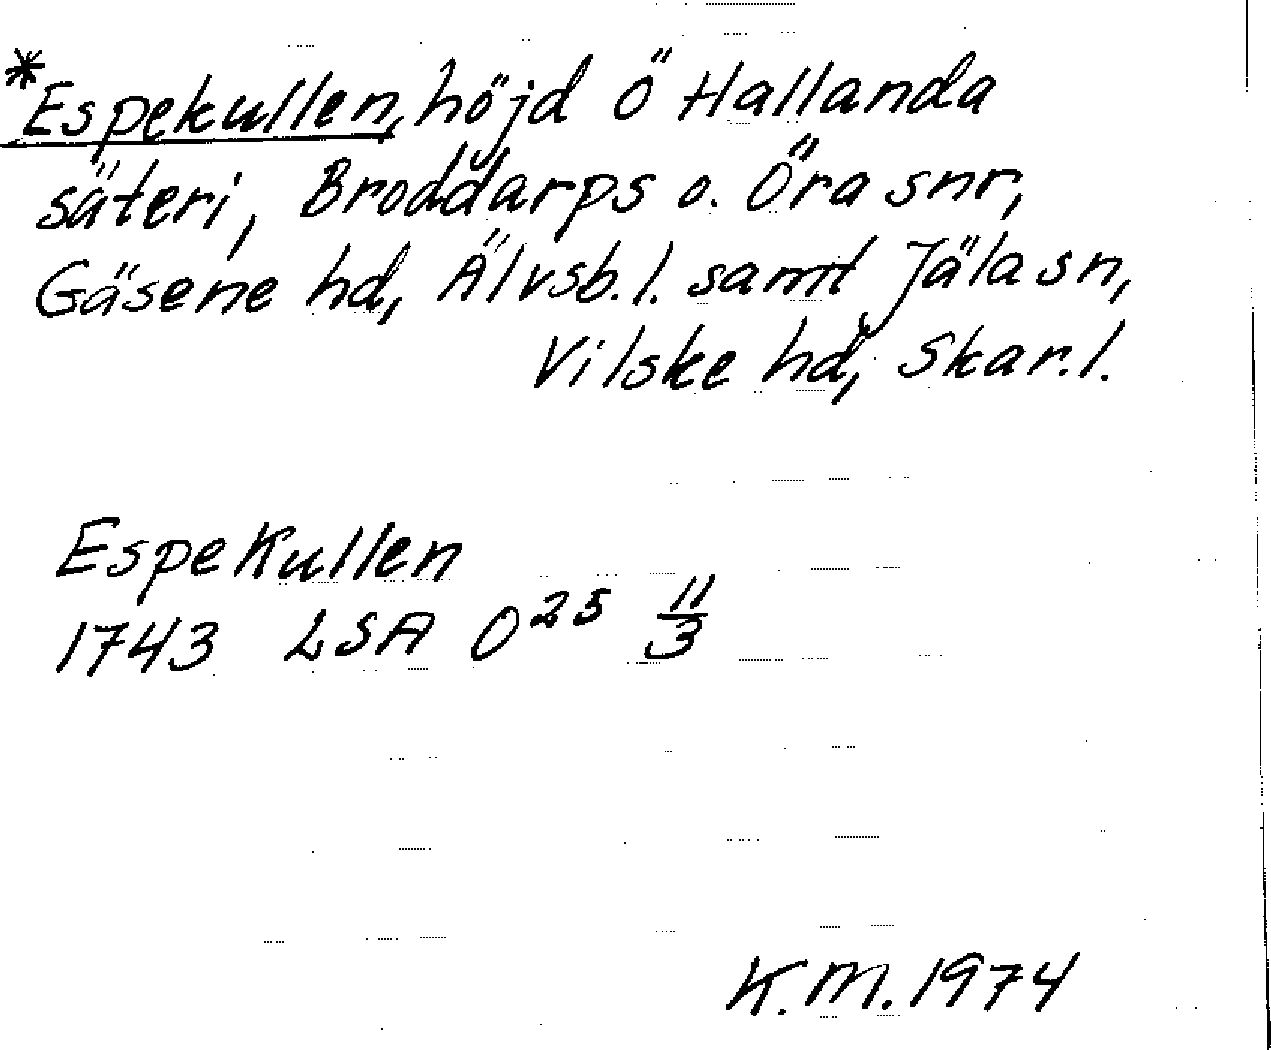 *Espekullen, höjd Ö Hallanda
säteri, Broddarps o. Öra snr,
Gäsene hd, Älvsb.l. samt Jäla sn,
Vilske hd, Skar.l.
Espekullen
1743 LSA O25 11/3
K.M. 1974